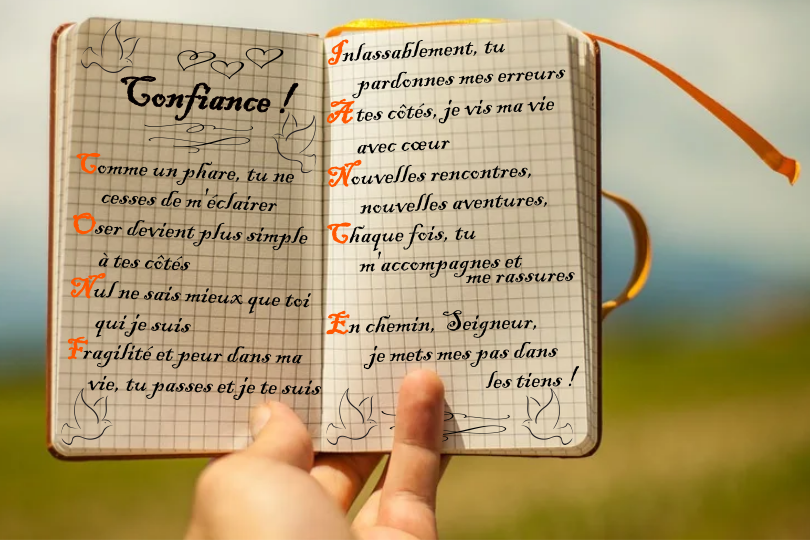 Confiance !
Comme un phare, tu ne
cesses de m'éclairer
Oser devient plus simple
à tes côtés
Nul ne sais mieux que toi
qui je suis
Fragilité et peur dans ma
vie, tu passes et je te suis
Inlassablement, tu
pardonnes mes erreurs
A tes côtés, je vis ma vie
avec cœur
Nouvelles rencontres,
nouvelles aventures,
Chaque fois, tu
m'accompagnes et
me rassures
En chemin, Seigneur,
je mets mes pas dans
les tiens !